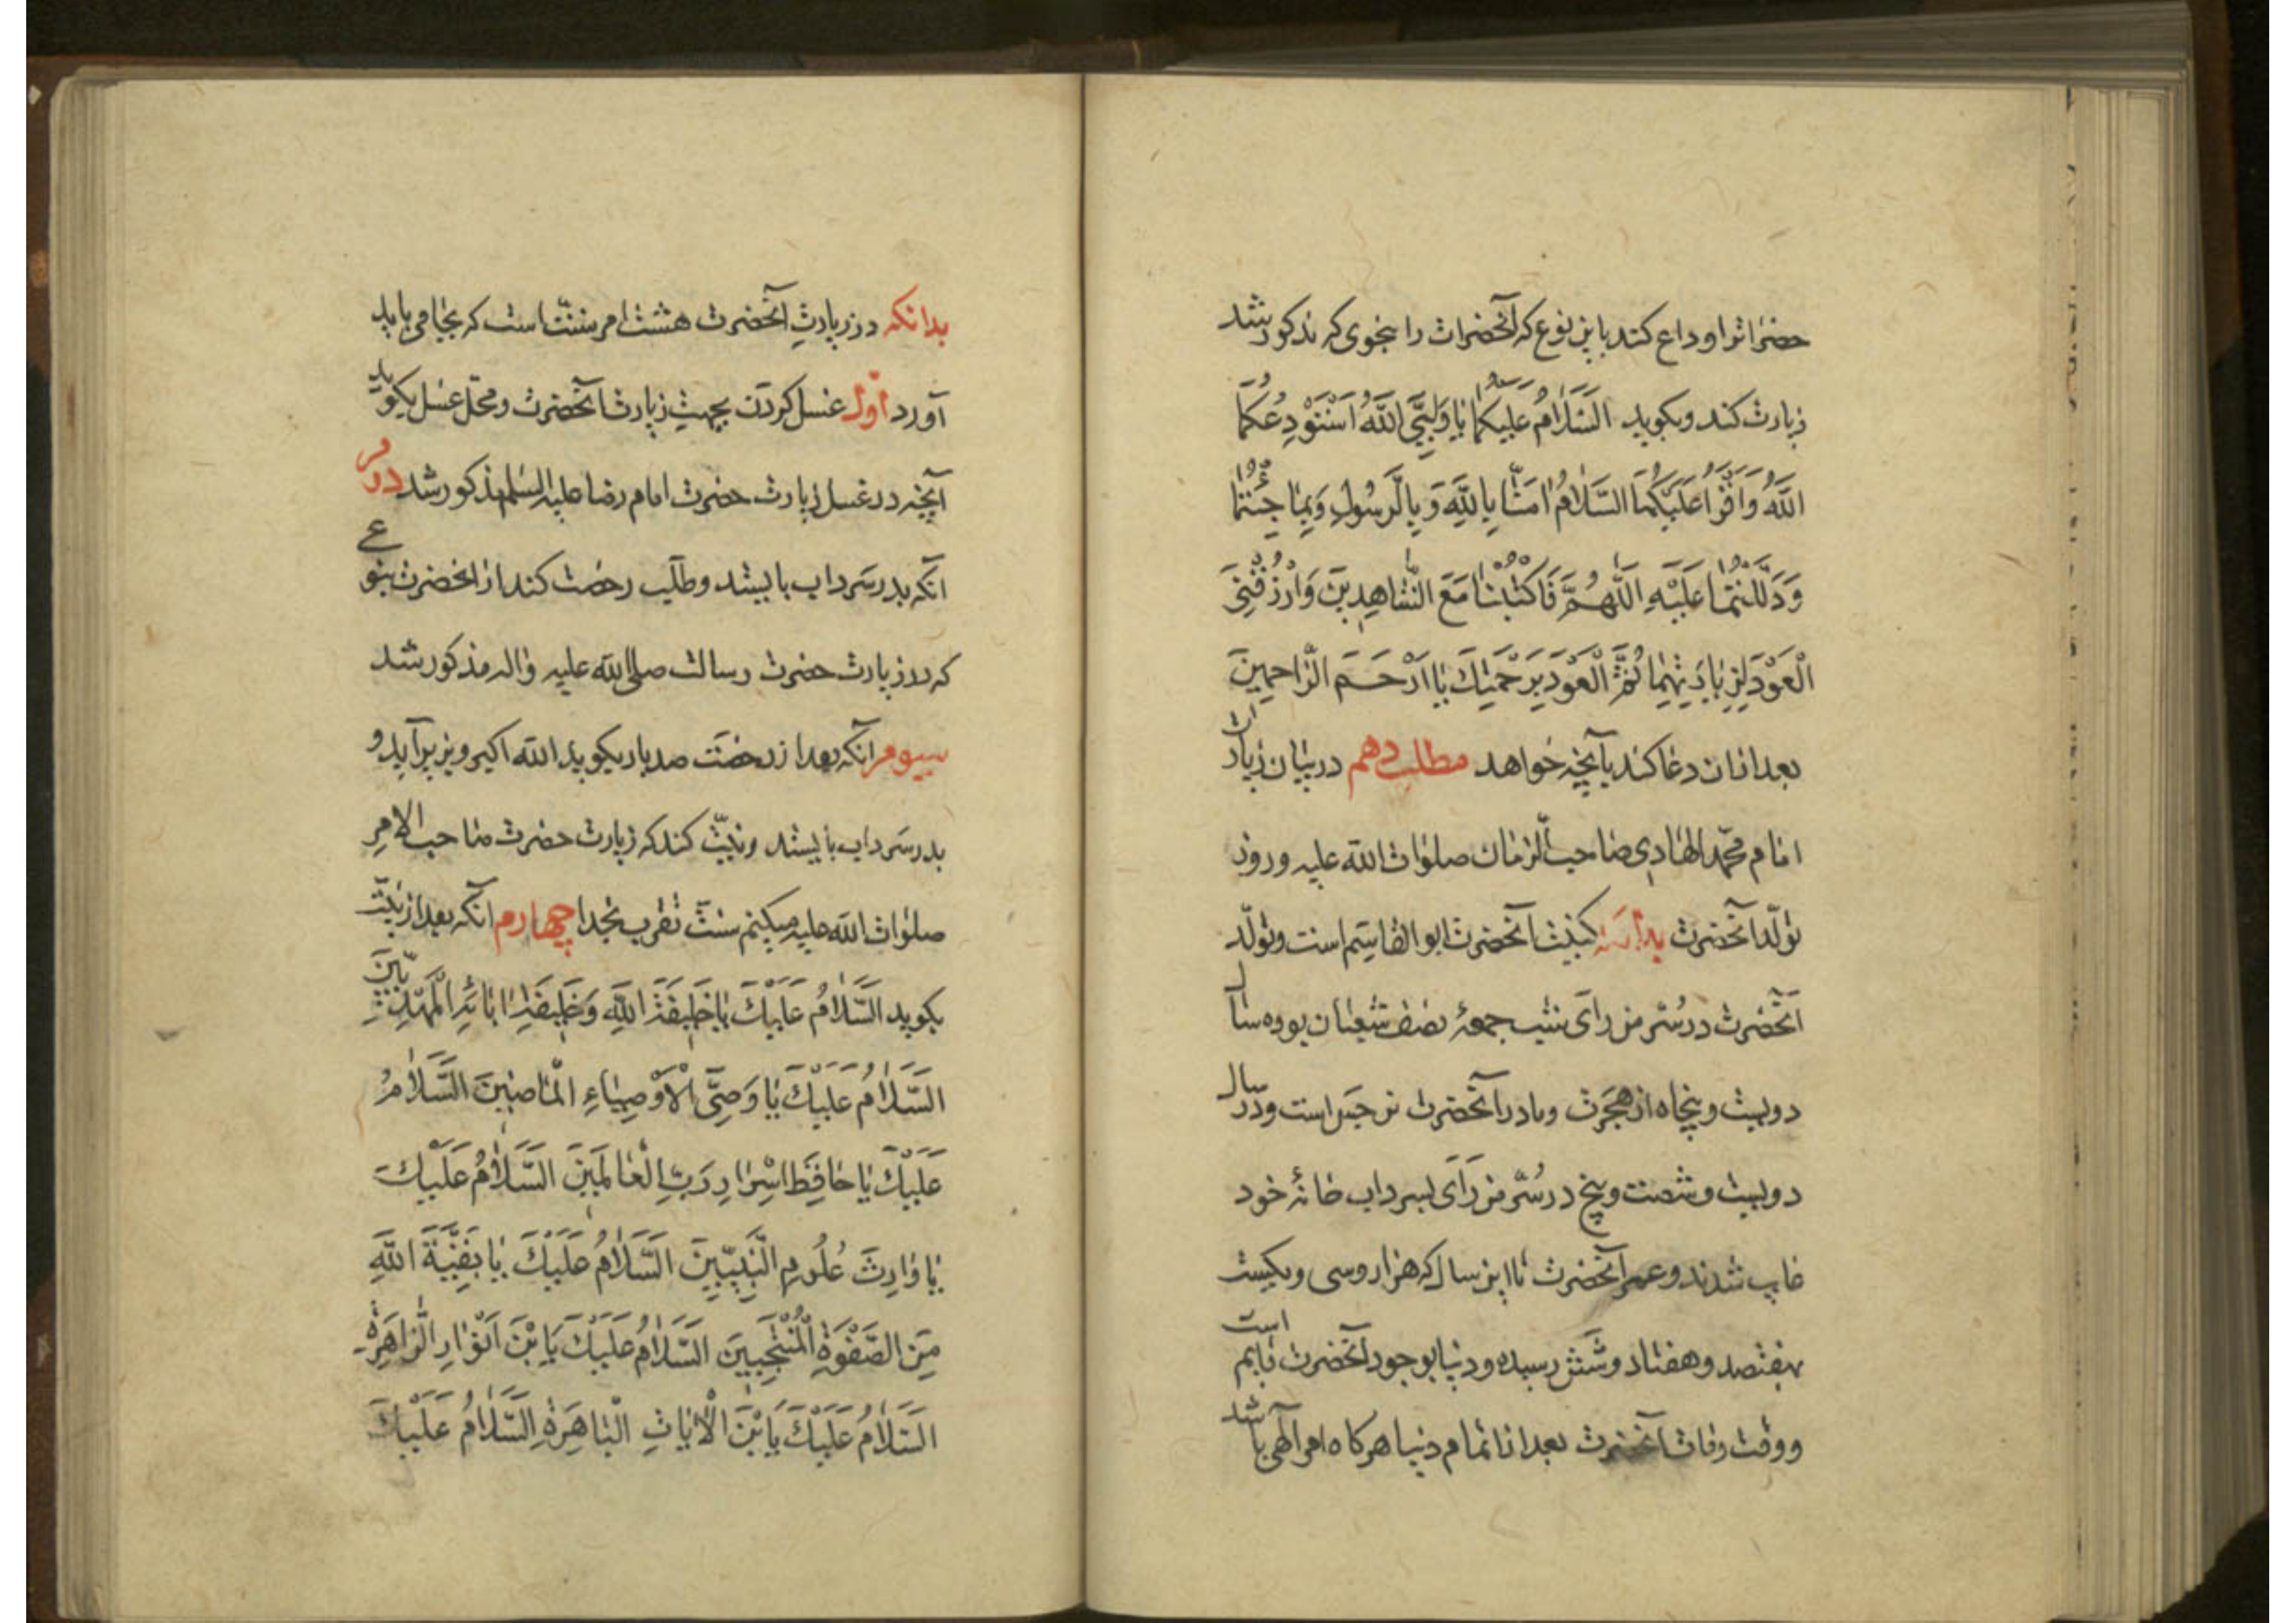 حضراترا وداع کند باین نوع که آنحضرات را بنحوی که مذکور شد
زیارت کند و بگوید السَّلَامُ عَلَیْکُمَا یَا وَلِیَّیِ اللَّهِ اَسْتَوْدِعُکُمَا
اللَّهَ وَاَقْرَأُ عَلَیْکُمَا السَّلَامُ امَنَّا بِاللَّهِ وَبِالرَّسُولِ وَبِمَا جِئْتُمَا
وَدَلَلْتُمَا عَلَیْهِ اللَّهُمَّ فَاکْتُبْنَا مَعَ الشَّاهِدِینَ وَارْزُقْنِی
الْعَوْدَ لِزِیَارَتِهِمَا ثُمَّ الْعَوْدَ بِرَحْمَتِكَ یَا اَرْحَمَ الرَّاحِمِینَ
بعد ازان دعا کند بآنچه خواهد مطلب دهم در بیان زیارات
امام محمّد الهادی صاحب الزمان صلوات الله علیه و روز
تولّد آنحضرت بدانکه کنیت آنحضرت ابو القاسم است وتولّد
آنحضرت در سُرّ من رَآی شب جمعهٔ نصف شعبان بوده سال
دویست و پنجاه از هجرت و مادر آنحضرت نرجس است و در سال
دویست و شصت و پنج در سُرّ من رَآی بسرداب خانهٔ خود
غایب شدند و عمر آنحضرت تا این سال که هزار و سی و یکست
بهفتصد و هفتاد و شش رسیده و دنیا بوجود آنحضرت قایم است
و وقت وفات آنحضرت بعد از اتمام دنیا هرکاه امر الهی باشد
بدانکه در زیارتِ آنحضرت هشت امر سنّت است که بجا می باید
آورد اوّل غسل کردن بجهتِ زیارت آنحضرت و محل غسل بکوید
آنچه در غسل زیارت حضرت امام رضا علیه السلم مذکور شد دویم
آنکه بدر سرداب بایستد و طلب رخصت کند از آنحضرت بنوعی
که در زیارت حضرت رسالت صلی الله علیه واله مذکور شد
سیوم آنکه بعد از رخصت صد بار بکوید الله اکبر و بزیر آید و
بدر سرداب بایستد و نیّت کند که زیارت حضرت صاحب الامر
صلوات الله علیه میکنم سنّت تقرب بخدا چهارم آنکه بعد از نیّت
بکوید السَّلَامُ عَلَیْكَ یَا خَلِیفَةَ اللَّهِ وَخَلِیفَةَ ابَائِهِ الْمَهْدِیِّینَ
السَّلَامُ عَلَیْكَ یَا وَصِیَّ الْاَوْصِیَاءِ الْمَاضِینَ السَّلَامُ
عَلَیْكَ یَا حَافِظَ اسْرَارِ رَبِّ الْعَالَمِینَ السَّلَامُ عَلَیْكَ
یَا وَارِثَ عُلُومِ النَّبِیِّینَ السَّلَامُ عَلَیْكَ یَا بَقِیَّةَ اللَّهِ
مِنَ الصَّفْوَةِ الْمُنْتَجَبِینَ السَّلَامُ عَلَیْكَ یَابْنَ اَنْوَارِ الزَّاهِرَةِ
السَّلَامُ عَلَیْكَ یَابْنَ الْایَاتِ الْبَاهِرَةِ السَّلَامُ عَلَیْكَ